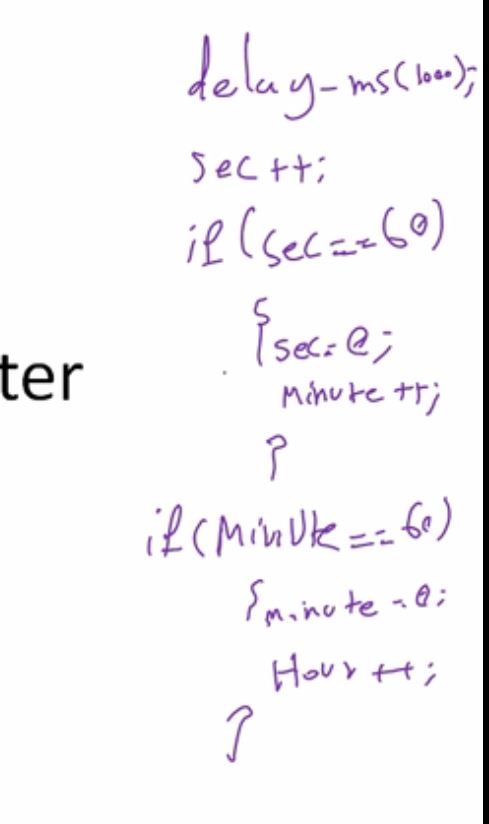 delay_ms(1000);
sec++;
if(sec==60)
{sec=0;
ter
minute++;
}
if(MinUte==60)
{minute=0;
Hour++;
}